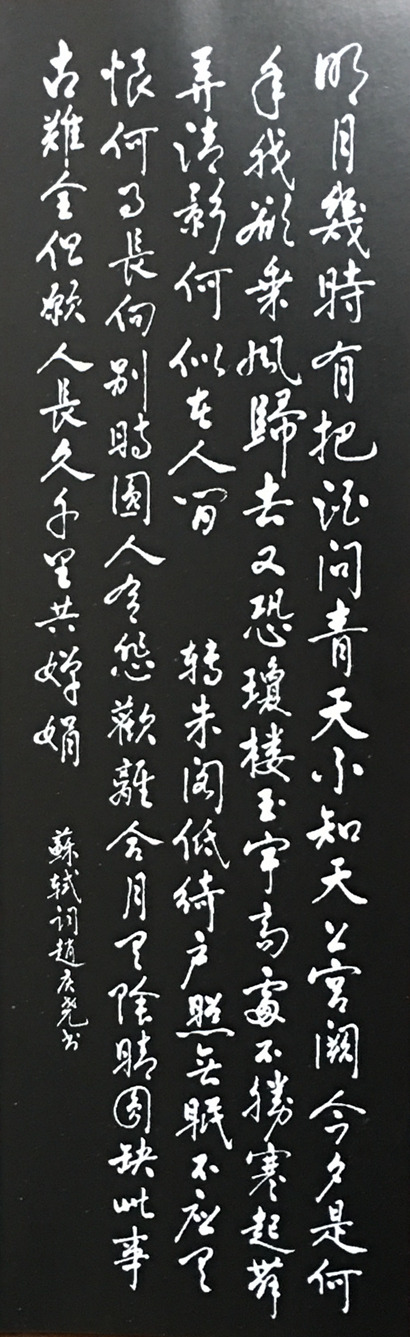 明月幾時有把酒问青天不知天上宫阙今夕是何
年我欲乘风歸去又恐瓊楼玉宇高處不勝寒起舞
弄清影何似在人间 转朱阁低绮户照无眠不应有
恨何事長向别時圆人有悲歡離合月有陰晴圆缺此事
古難全但願人長久千里共嬋娟
蘇軾词趙庆尧书